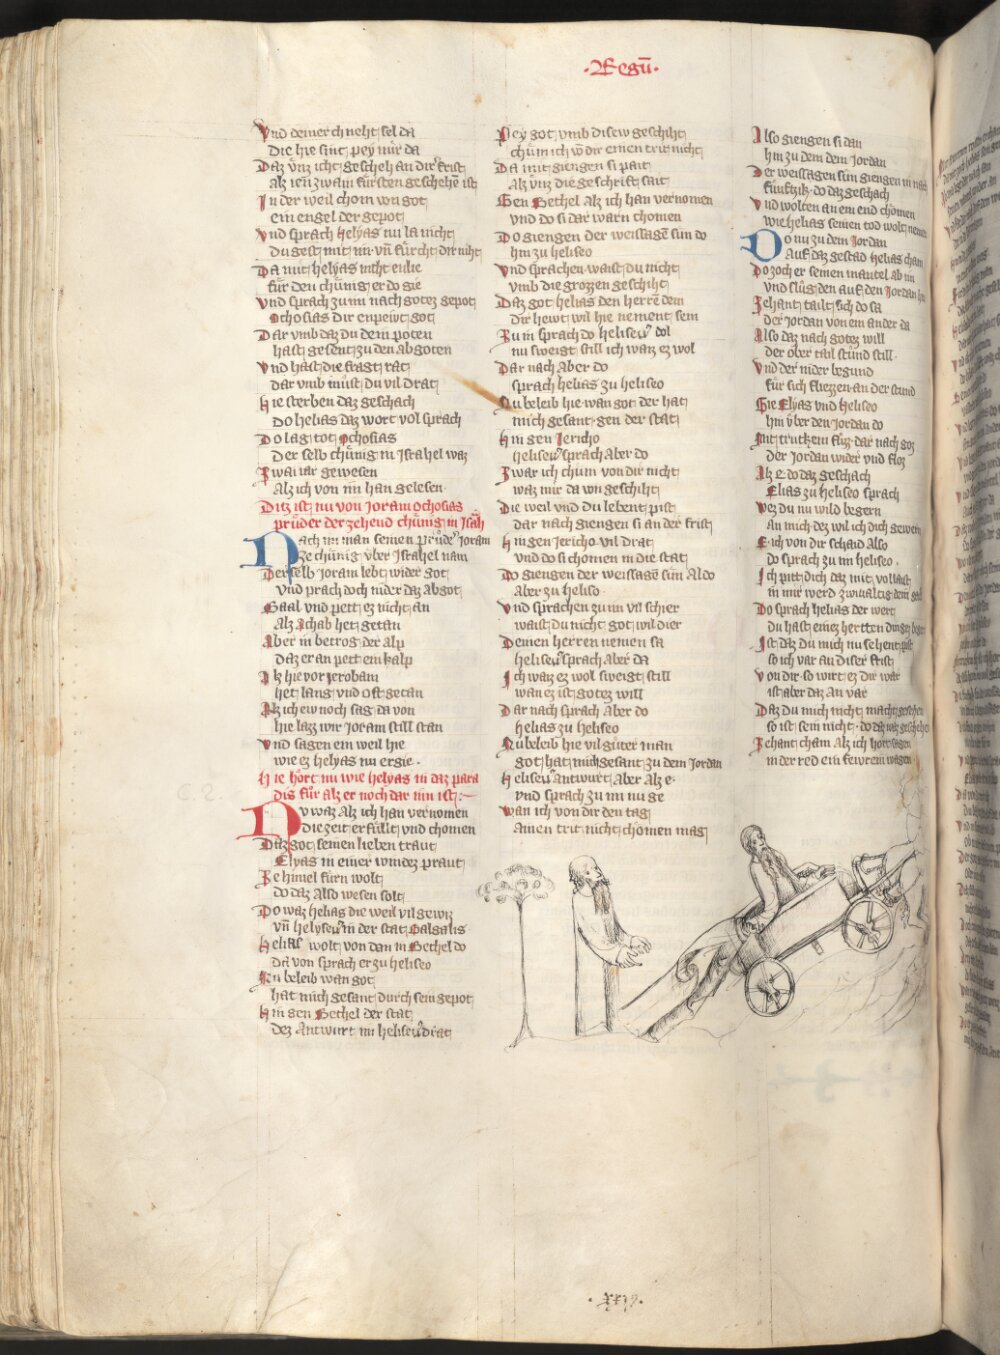 ·Regū·
Vnd deiner ch neht sel da
Die hie sint pey mir da
Daz vnz icht gescheh an dir frist
Alz ien zwain fürsten geschehē ist
In der weil chom von got
ein engel der gepot
Vnd sprach helyas nu la nicht
du gest mit im vn̄ fürcht dir niht
Da mit helyas nicht enlie
für den chünig er do gie
Vnd sprach zu im nach gotez gepot
Ochosias dir enpewt got
Dar vmb daz du dein poten
hast gesent zu den abgoten
Vnd hast die fragt rat
dar vmb müst du vil drat
Hie sterben daz geschach
Do helias daz wort vol sprach
Do lag tot Ochosias
Der selb chünig in Israhel waz
Zwai iar gewesen
Alz ich von im han gelesen
Ditz ist nu von Joram Ochosias
prüder der zehend chünig in Isrl
Nach im nam seinen prüder Joram
Ze chünig vber Israhel nam
Der selb Joram lebt wider got
Vnd prach doch nider daz abgot
Baal vnd pett ez nicht an
Alz Achab het getan
Aber in betrog der alp
daz er an pett ein kalp
Alz hie vor Jerobam
het lang vnd oft getan
Alz ich ew noch sag da von
hie lazz wir Joram still stan
Vnd sagen ein weil hie
wie ez helyas nu ergie·
Hie hört nu wie helyas in daz para
dis für alz er noch dar inn ist:
Nv waz alz ich han vernomen
die zeit erfüllt vnd chomen
Daz got seinen lieben traut
Elyas in einer windez praut
Ze himel fürn wolt
do daz also wesen solt
Do waz helias die weil vil gewiz
vn̄ helyseus in der stat Galgalis
Helias wolt von dan in Bethel do
da von sprach er zu heliseo
Nu beleib wan got
hat mich gesant durch sein gepot
Hin gen Bethel der stat
dez antwurt im heliseus drat
Pey got vmb disew geschiht
chüm ich vō dir einen trit nicht
Da mit giengen si palt
Alz vnz die geschrift sait
Gen Bethel alz ich han vernomen
vnd do si dar warn chomen
Do giengen der weissagē sün do
hin zu heliseo
Vnd sprachen waist du nicht
vmb die grozzen geschiht
Daz got helias den herrē dein
dir hewt wil hie nement sein
Zu in sprach do heliseus dol
nu sweigt still ich waiz ez wol
Dar nach aber do
sprach helias zu heliseo
Nu beleib hie wan got der hat
mich gesant gen der stat
Hin gen Jericho
heliseus sprach aber do
Zwar ich chum von dir nicht
waz mir da von geschiht
Die weil vnd du lebent pist
dar nach giengen si an der frist
Hin gen Jericho vil drat
vnd do si chomen in die stat
Do giengen der weissagē sün aldo
aber zu heliso
Vnd sprachen zu im vil schier
waist du nicht got wil dier
Deinen herren nemen sa
heliseus sprach aber da
Ich waiz ez wol sweigt still
wan ez ist gotez will
Dar nach sprach aber do
helias zu heliseo
Nu beleib hie vil güter man
got hat mich gesant zu dem Jordan
Heliseus antwurt aber alz e·
vnd sprach zu im nu ge
Wan ich von dir den tag
ainen trit nicht chomen mag
Also giengen si dan
hin zu dem dem Jordan
Der weissagen sün giengen in nach
fünftzik do daz geschach
Vnd wolten an ein end chomen
wie helias seinen tod wolt nemen
Do nu zu dem Jordan
Auf daz gestad helias cham
Do zoch er seinen mantel ab im
vnd slüg den auf den Jordan hin
Zehant tailt sich do sa
der Jordan von ein ander da
Also daz nach gotez will
der ober tail stünd still·
Vnd der nider begund
für sich fliezzen an der stund
Gie Elyas vnd heliseo
hin vber den Jordan do
Mit truckem füz dar nach goz
der Jordan wider vnd floz
Alz e do daz geschach
Elias zu heliseo sprach
Wez du nu wild begern
an mich dez wil ich dich gewern
E ich von dir schaid also
do sprach zu im heliseo·
Ich pitt dich daz mit vollaist
in mir werd zwiualtig dein gaist
Do sprach helias der wert
du hast einez hertten dingez begert
Ist daz du mich nu sehent pist
so ich var an diser frist
Von dir so wirt ez dir war
ist aber daz an var
Daz du mich nicht macht gesehen
so ist sein nicht· do daz waz geschehen
Zehant cham alz ich hort sagen
in der red ein fewrein wagen